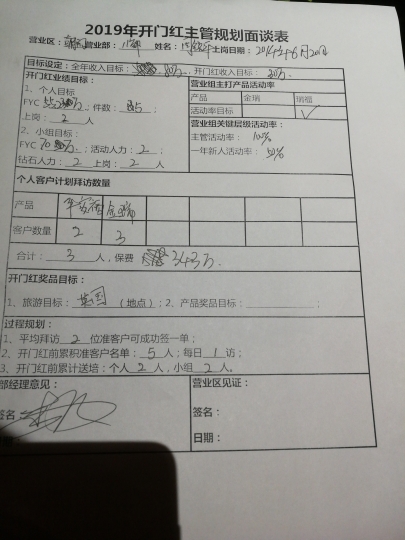 2019年开门红主管规划面谈表
营业区： 营业部： 姓名： 上岗日期：2014年6月20日
目标设定：全年收入目标： 80万、开门红收入目标： 20万
开门红业绩目标： 营业组主打产品活动率
1、个人目标 产品 金瑞 瑞福
FYC 件数： 活动率目标 √
上岗： 2 人 营业组关键层级活动率：
2、小组目标： 主管活动率： 100%
FYC 70 万、；活动人力： 2 ； 一年新人活动率： 50%
钻石人力： 2 上岗： 2 人
个人客户计划拜访数量
产品 平安福 金瑞
客户数量 2 3
合计： 3 人，保费 343万.
开门红奖品目标：
1、旅游目标： 英国 （地点）；2、产品奖品目标： ；
过程规划：
1、平均拜访 2 位准客户可成功签一单；
2、开门红前累积准客户名单： 5 人；每日 1 访；
3、开门红前累计送培：个人 2 人，小组 2 人。
部经理意见： 营业区见证：
签名： 签名：
日期：